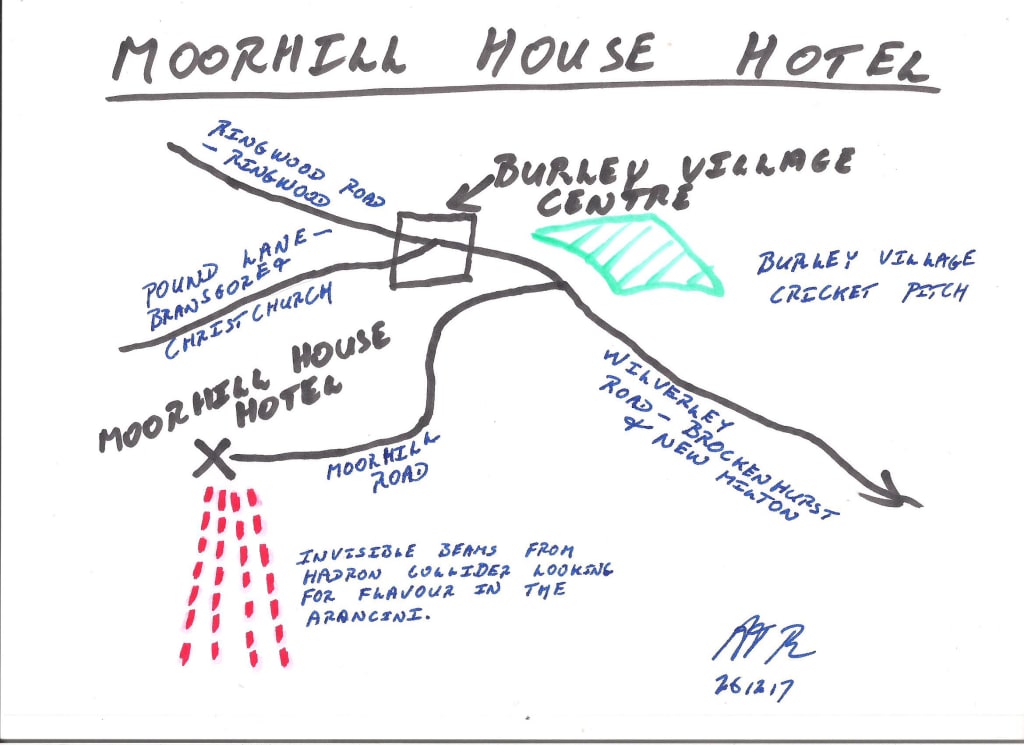 MOORHILL HOUSE HOTEL
RINGWOOD ROAD
- RINGWOOD
BURLEY VILLAGE
CENTRE
POUND LANE -
BRANSGORE &
CHRISTCHURCH
BURLEY VILLAGE
CRICKET PITCH
MOORHILL HOUSE
HOTEL
WILVERLEY
ROAD - BROCKENHURST
& NEW MILTON
MOORHILL
ROAD
INVISIBLE BEAMS FROM
HADRON COLLIDER LOOKING
FOR FLAVOUR IN THE
ARANCINI.
261217